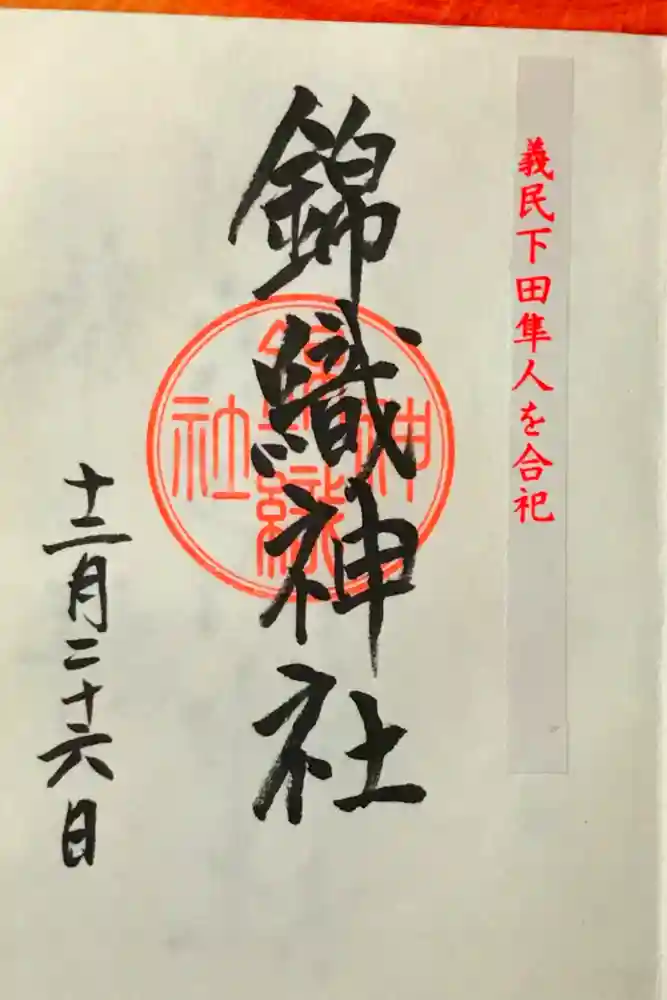 義民下田隼人を合祀
錦織神社
錦織神社
十二月二十六日